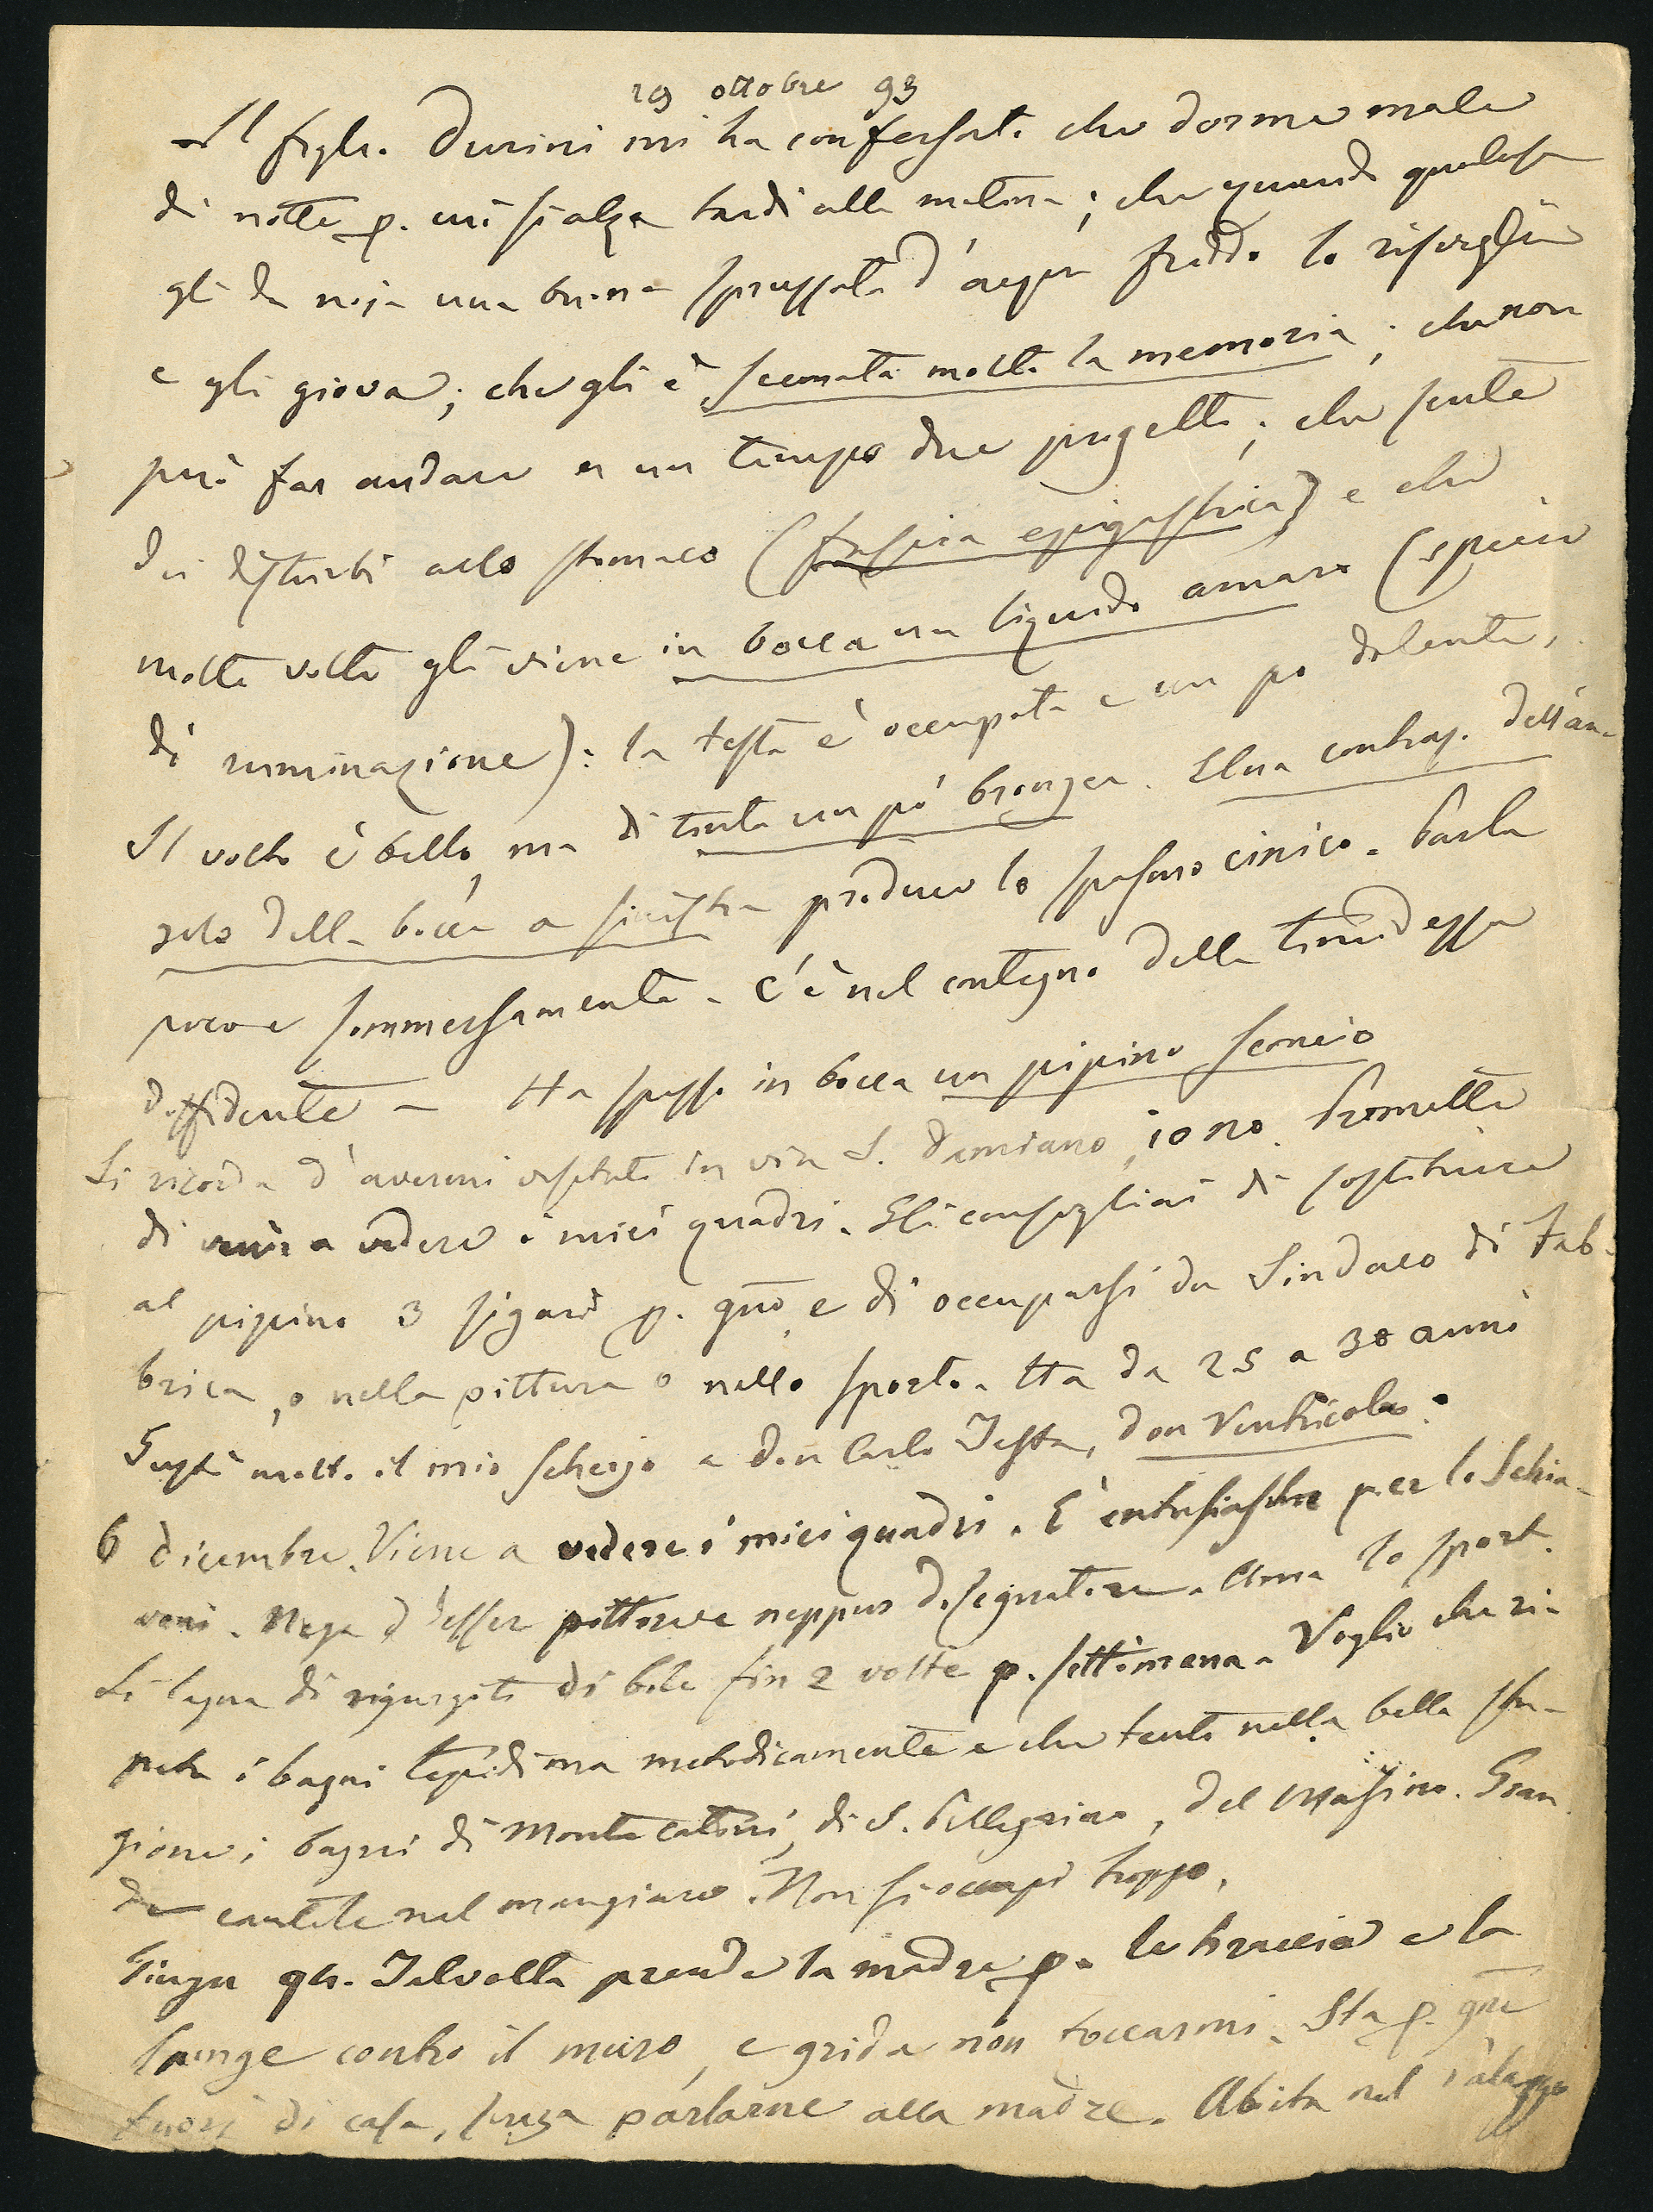 19 ottobre 93
Il figlio Durini mi ha confessato che dorme male
di notte p. cui si alza tardi alla mattina; che quando qualcosa
gli da noja una buona spruzzata d'acqua fredda lo risveglia
e gli giova; che gli è scemata molto la memoria; che non
può far andare a un tempo due progetti; che sente
dei disturbi allo stomaco (fascia epigastrica) e che
molte volte gli viene in bocca un liquido amaro (specie
di ruminazione): la testa è occupata e un po dolente.
Il volto è bello, ma di tinta un pò bronzea. Una contraz. dell'an-
golo della bocca a sinistra produce lo spasmo cinico. Parla
poco e sommessamente. C'è nel contegno della timidezza
diffidente – Ha spesso in bocca un pipino sconcio
Si ricorda d'avermi visitato in via S. Damiano, io no. Promette
di venir a vedere i miei quadri. Gli consigliai di sostituire
al pipino 3 sigari p. gno, e di occuparsi da Sindaco di Fab-
brica, o nella pittura o nello sport. Ha da 25 a 30 anni
Gustò molto il mio scherzo a don Carlo Testa, don Ventricolo.
6 dicembre. Viene a vedere i miei quadri. È entusiasta per lo Schia-
voni. Nega d'esser pittore e neppur disegnatore. Ama lo sport.
Si lagna di rigurgiti di bile fin 2 volte p. settimana. Voglio che ri-
peta i bagni tepidi ma metodicamente e che tenti nella bella sta-
gione i bagni di Montecatini, di S. Pellegrino, del Masino. Gran
de cautele nel mangiare. Non si occupi troppo.
Giugn Talvolta prende la madre p. le braccia e la
spinge contro il muro, e grida non toccarmi. Sta p. gne
fuori di casa, senza parlarne alla madre. Abita nel palazzo